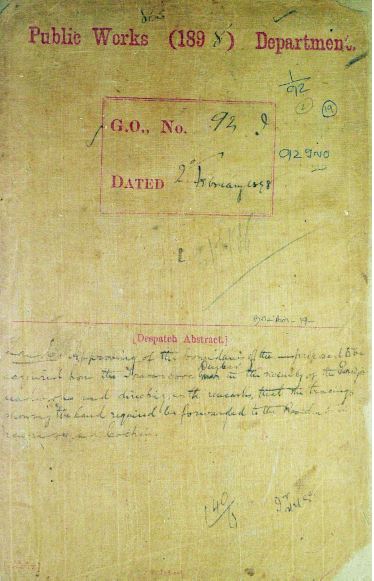 Public Works (1898) Department.
1/92
19
G.O., No. 92 I
92 I
DATED 2nd February 1898
[Despatch Abstract.]
Approving of the boundary of the land proposed to be
acquired from the Travancore Durbar in the vicinity of the Periyar
works and directing, with remarks, that the tracings
showing the land required be forwarded to the Resident in
Travancore and Cochin.
140